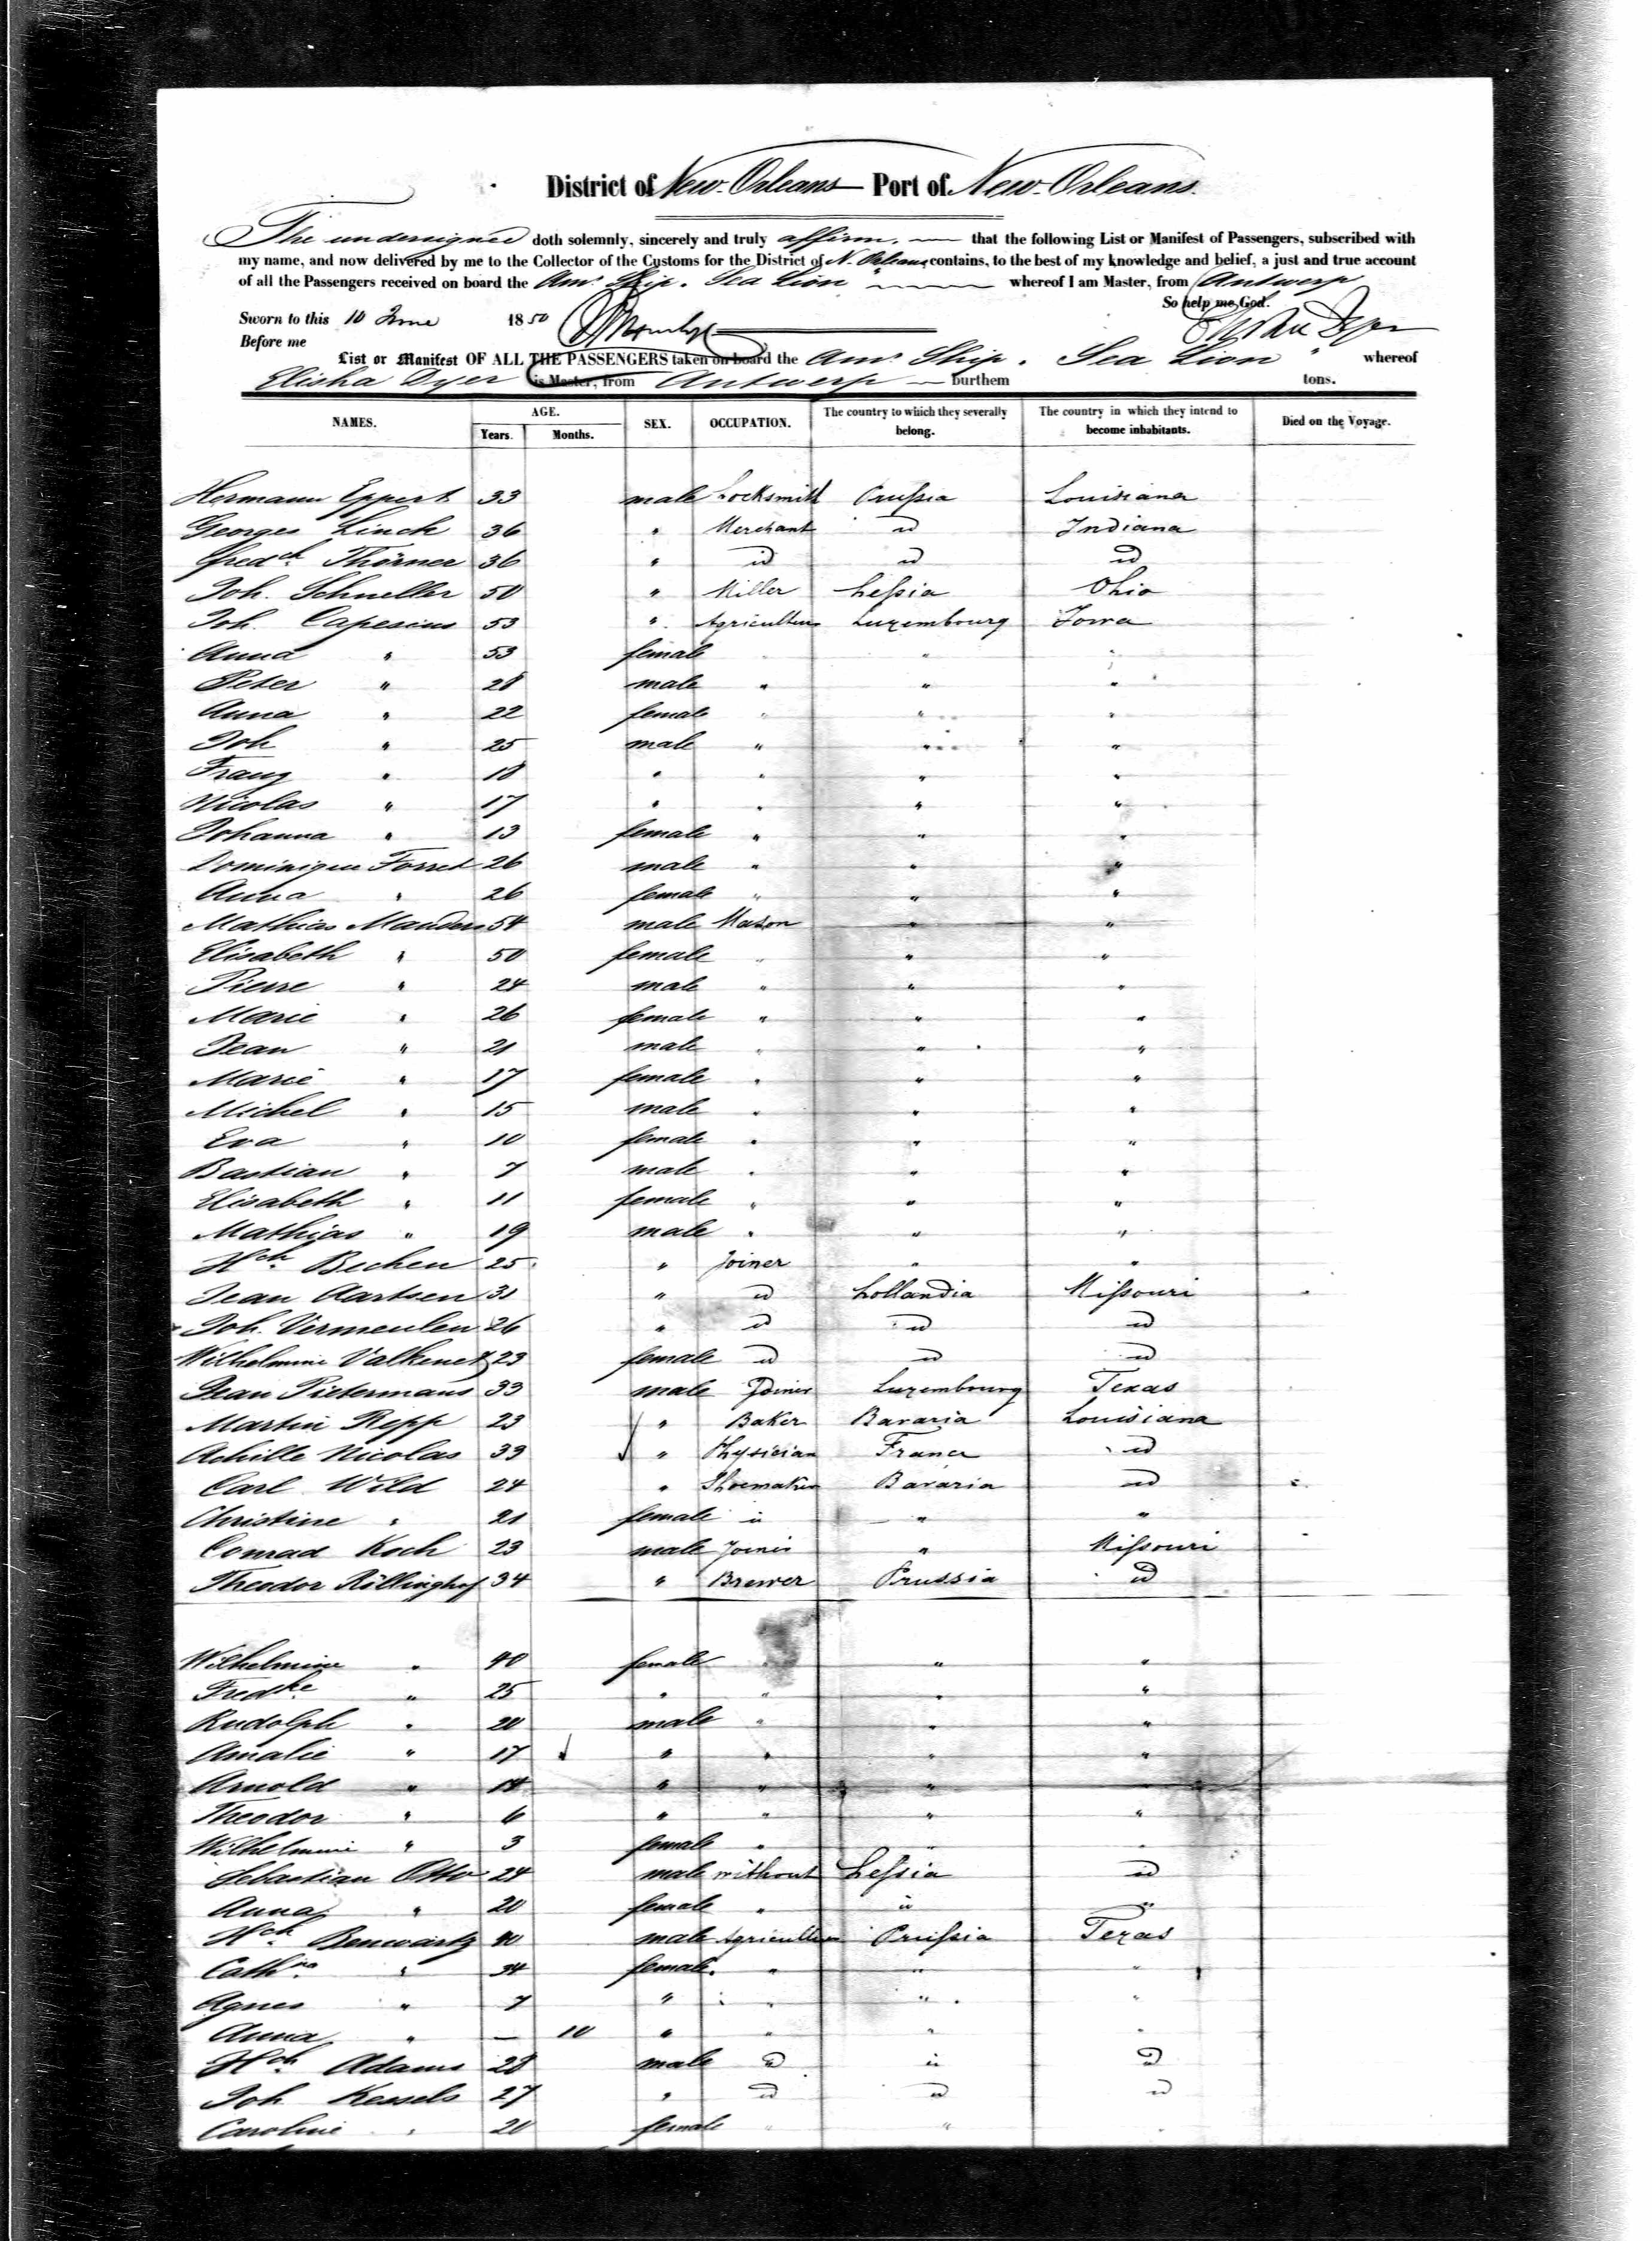 District of New-Orleans — Port of New-Orleans.
The undersigned doth solemnly, sincerely and truly affirm. — that the following List or Manifest of Passengers, subscribed with
my name, and now delivered by me to the Collector of the Customs for the District of N. Orleans contains, to the best of my knowledge and belief, a just and true account
of all the Passengers received on board the Am. Ship. Sea Lion " whereof I am Master, from Antwerp
So help me God.
Sworn to this 10 June 1850
Before me
List or Manifest OF ALL THE PASSENGERS taken on board the Am. Ship. Sea Lion " whereof
Elisha Dyer is Master, from Antwerp — burthem tons.
NAMES. AGE. Years. Months. SEX. OCCUPATION. The country to which they severally belong. The country in which they intend to become inhabitants. Died on the Voyage.
Hermann Eppert 33 male Locksmith Prussia Louisiana
Georges Linck 36 " Merchant id Indiana
Fred.ch Thörner 36 " id id id
Joh. Schneller 50 " Miller Hessia Ohio
Joh. Capesius 53 " Agriculteur Luxembourg Iowa
Anna " 53 female " " "
Peter " 28 male " " "
Anna " 22 female " " "
Joh " 25 male " " "
Franz " 18 " " " "
Nicolas " 17 " " " "
Johanna " 13 female " " "
Dominique Forret 26 male " " "
Anna " 26 female " " "
Mathias Manders 54 male Mason " "
Elisabeth " 50 female " " "
Pierre " 24 male " " "
Marie " 26 female " " "
Jean " 21 male " " "
Marie " 17 female " " "
Michel " 15 male " " "
Eva " 10 female " " "
Bastian " 7 male " " "
Elisabeth " 11 female " " "
Mathias " 19 male " " "
Hch. Bechen 25 " Joiner " "
Jean Aartsen 31 " id Hollandia Missouri
Joh. Vermeulen 26 " id id id
Wilhelmine Valkenet 23 female id id id
Jean Pietermans 33 male Joiner Luxembourg Texas
Martin Repp 23 " Baker Bavaria Louisiana
Achille Nicolas 39 " Physician France id
Carl Wild 24 " Shoemaker Bavaria id
Christine " 21 female " " "
Conrad Koch 23 male Joiner " Missouri
Theodor Röllinghof 34 " Brewer Prussia id
Wilhelmine " 40 female " " "
Fredke " 25 " " " "
Rudolph " 20 male " " "
Amalie " 17 " " " "
Arnold " 14 " " " "
Theodor " 6 " " " "
Wilhelmine " 3 female " " "
Sebastian Otto 24 male without Hessia id
Anna " 20 female " " "
Hch Benwartz 40 male Agriculteur Prussia Texas
Cathna " 34 female " " "
Agnes " 7 " " " "
Anna " — 10 " " " "
Hch. Adams 28 male id " id
Joh Kessels 27 " id id id
Caroline " 20 female " " "